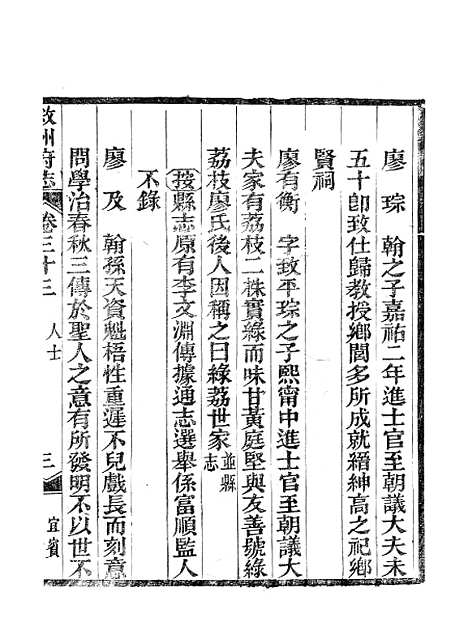 廖　琮　翰之子嘉祐二年進士官至朝議大夫未
五十卽致仕歸敎授鄉閭多所成就縉紳高之祀鄉
賢祠
廖有衡　字致平琮之子熙甯中進士官至朝議大
夫家有荔枝二株實綠而味甘黃庭堅與友善號綠
荔枝廖氏後人因稱之曰綠荔世家並縣志
按縣志原有李文淵傳據通志選舉係富順監人
不錄
廖　及　翰孫天資魁梧性重遲不兒戲長而刻意
問學治春秋三傳於聖人之意有所發明不以世不
敘州府志　卷三十三　人士　三　宜賓